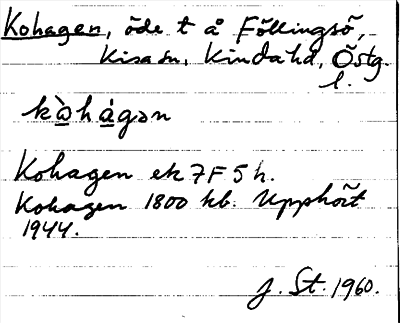 Kohagen, öde t å Föllingsö,
Kisa sn, Kinda hd, Östg.
l.
kòhágən
Kohagen ek 7F 5 h.
Kohagen 1800 kb. Upphört
1944.
J. St. 1960.